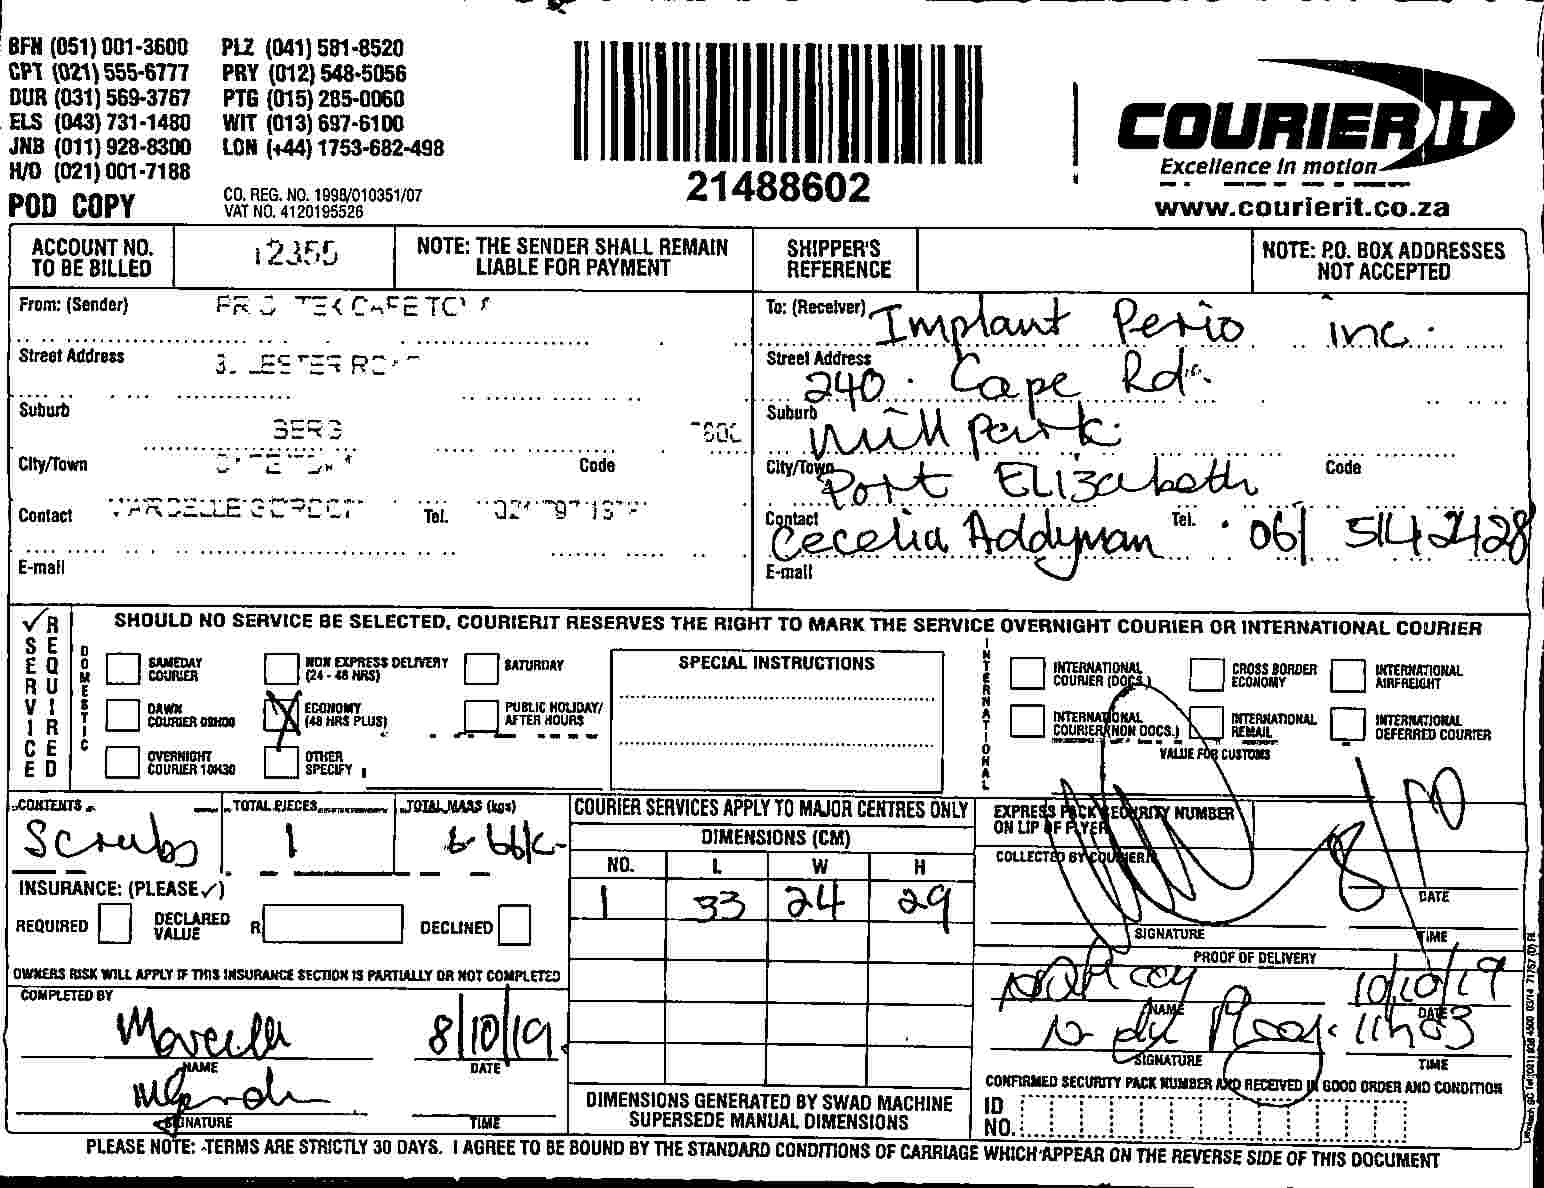 BFN (051) 001-3600 PLZ (041) 581-8520
CPT (021) 555-6777 PRY (012) 548-5056
DUR (031) 569-3767 PTG (015) 285-0060
ELS (043) 731-1480 WIT (013) 697-6100
JNB (011) 928-8300 LON (+44) 1753-682-498
H/O (021) 001-7188
POD COPY
CO. REG. NO. 1998/010351/07
VAT NO. 4120195526
21488602
COURIER IT
Excellence in motion
www.courierit.co.za
ACCOUNT NO. TO BE BILLED 12355
NOTE: THE SENDER SHALL REMAIN LIABLE FOR PAYMENT
SHIPPER'S REFERENCE
NOTE: P.O. BOX ADDRESSES NOT ACCEPTED
From: (Sender)
Street Address
Suburb
City/Town Code
Contact Tel.
E-mail
To: (Receiver) Implant Perio inc.
Street Address 240 Cape Rd.
Suburb Mill Park
City/Town Port Elizabeth Code
Contact Cecelia Addyman Tel. 061 514 2428
E-mail
✓ SERVICE REQUIRED
SHOULD NO SERVICE BE SELECTED, COURIERIT RESERVES THE RIGHT TO MARK THE SERVICE OVERNIGHT COURIER OR INTERNATIONAL COURIER
DOMESTIC
SAMEDAY COURIER
NON EXPRESS DELIVERY (24 - 48 HRS)
SATURDAY
DAWN COURIER 09H00
X ECONOMY (48 HRS PLUS)
PUBLIC HOLIDAY/ AFTER HOURS
OVERNIGHT COURIER 10H30
OTHER SPECIFY
SPECIAL INSTRUCTIONS
INTERNATIONAL
INTERNATIONAL COURIER (DOCS.)
CROSS BORDER ECONOMY
INTERNATIONAL AIRFREIGHT
INTERNATIONAL COURIER (NON DOCS.)
INTERNATIONAL REMAIL
INTERNATIONAL DEFERRED COURIER
VALUE FOR CUSTOMS
CONTENTS Scrubs
TOTAL PIECES 1
TOTAL MASS (kgs)
INSURANCE: (PLEASE ✓)
REQUIRED DECLARED VALUE R DECLINED
OWNERS RISK WILL APPLY IF THIS INSURANCE SECTION IS PARTIALLY OR NOT COMPLETED
COMPLETED BY
8/10/19
NAME DATE
SIGNATURE TIME
COURIER SERVICES APPLY TO MAJOR CENTRES ONLY
DIMENSIONS (CM)
NO. L W H
1 33 24 29
DIMENSIONS GENERATED BY SWAD MACHINE SUPERSEDE MANUAL DIMENSIONS
EXPRESS PACK SECURITY NUMBER ON LIP OF FLYER
COLLECTED BY COURIERIT
8/10
DATE
SIGNATURE TIME
PROOF OF DELIVERY
10/10/19
NAME DATE
11h03
SIGNATURE TIME
CONFIRMED SECURITY PACK NUMBER AND RECEIVED IN GOOD ORDER AND CONDITION
ID NO.
PLEASE NOTE: TERMS ARE STRICTLY 30 DAYS. I AGREE TO BE BOUND BY THE STANDARD CONDITIONS OF CARRIAGE WHICH APPEAR ON THE REVERSE SIDE OF THIS DOCUMENT